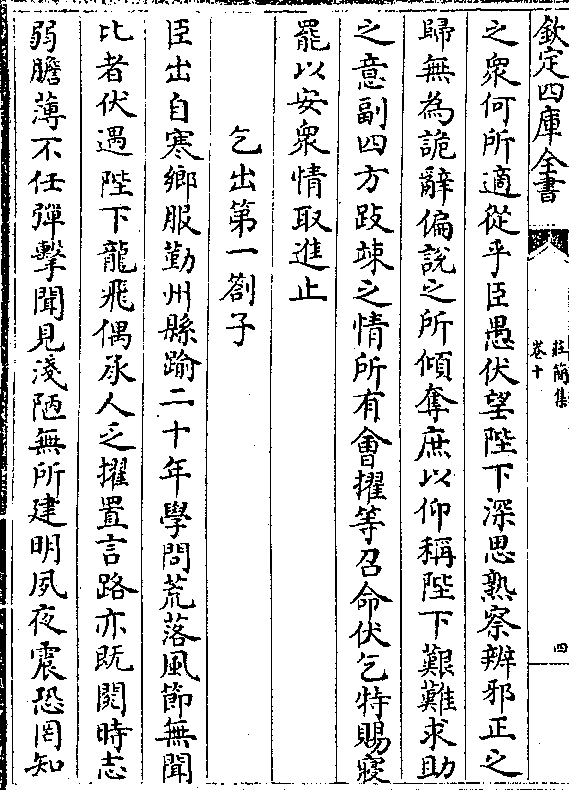 欽定四庫全書
莊簡集
卷十
四
之衆何所適從乎臣愚伏望陛下深思熟察辨邪正之
歸無為詭辭偏說之所傾奪庶以仰稱陛下艱難求助
之意副四方跂竦之情所有會擢等召命伏乞特賜寢
罷以安衆情取進止
乞出第一劄子
臣出自寒鄉服勤州縣踰二十年學問荒落風節無聞
比者伏遇陛下龍飛偶承人乏擢置言路亦既閱時志
弱膽薄不任彈擊聞見淺陋無所建明夙夜震恐罔知